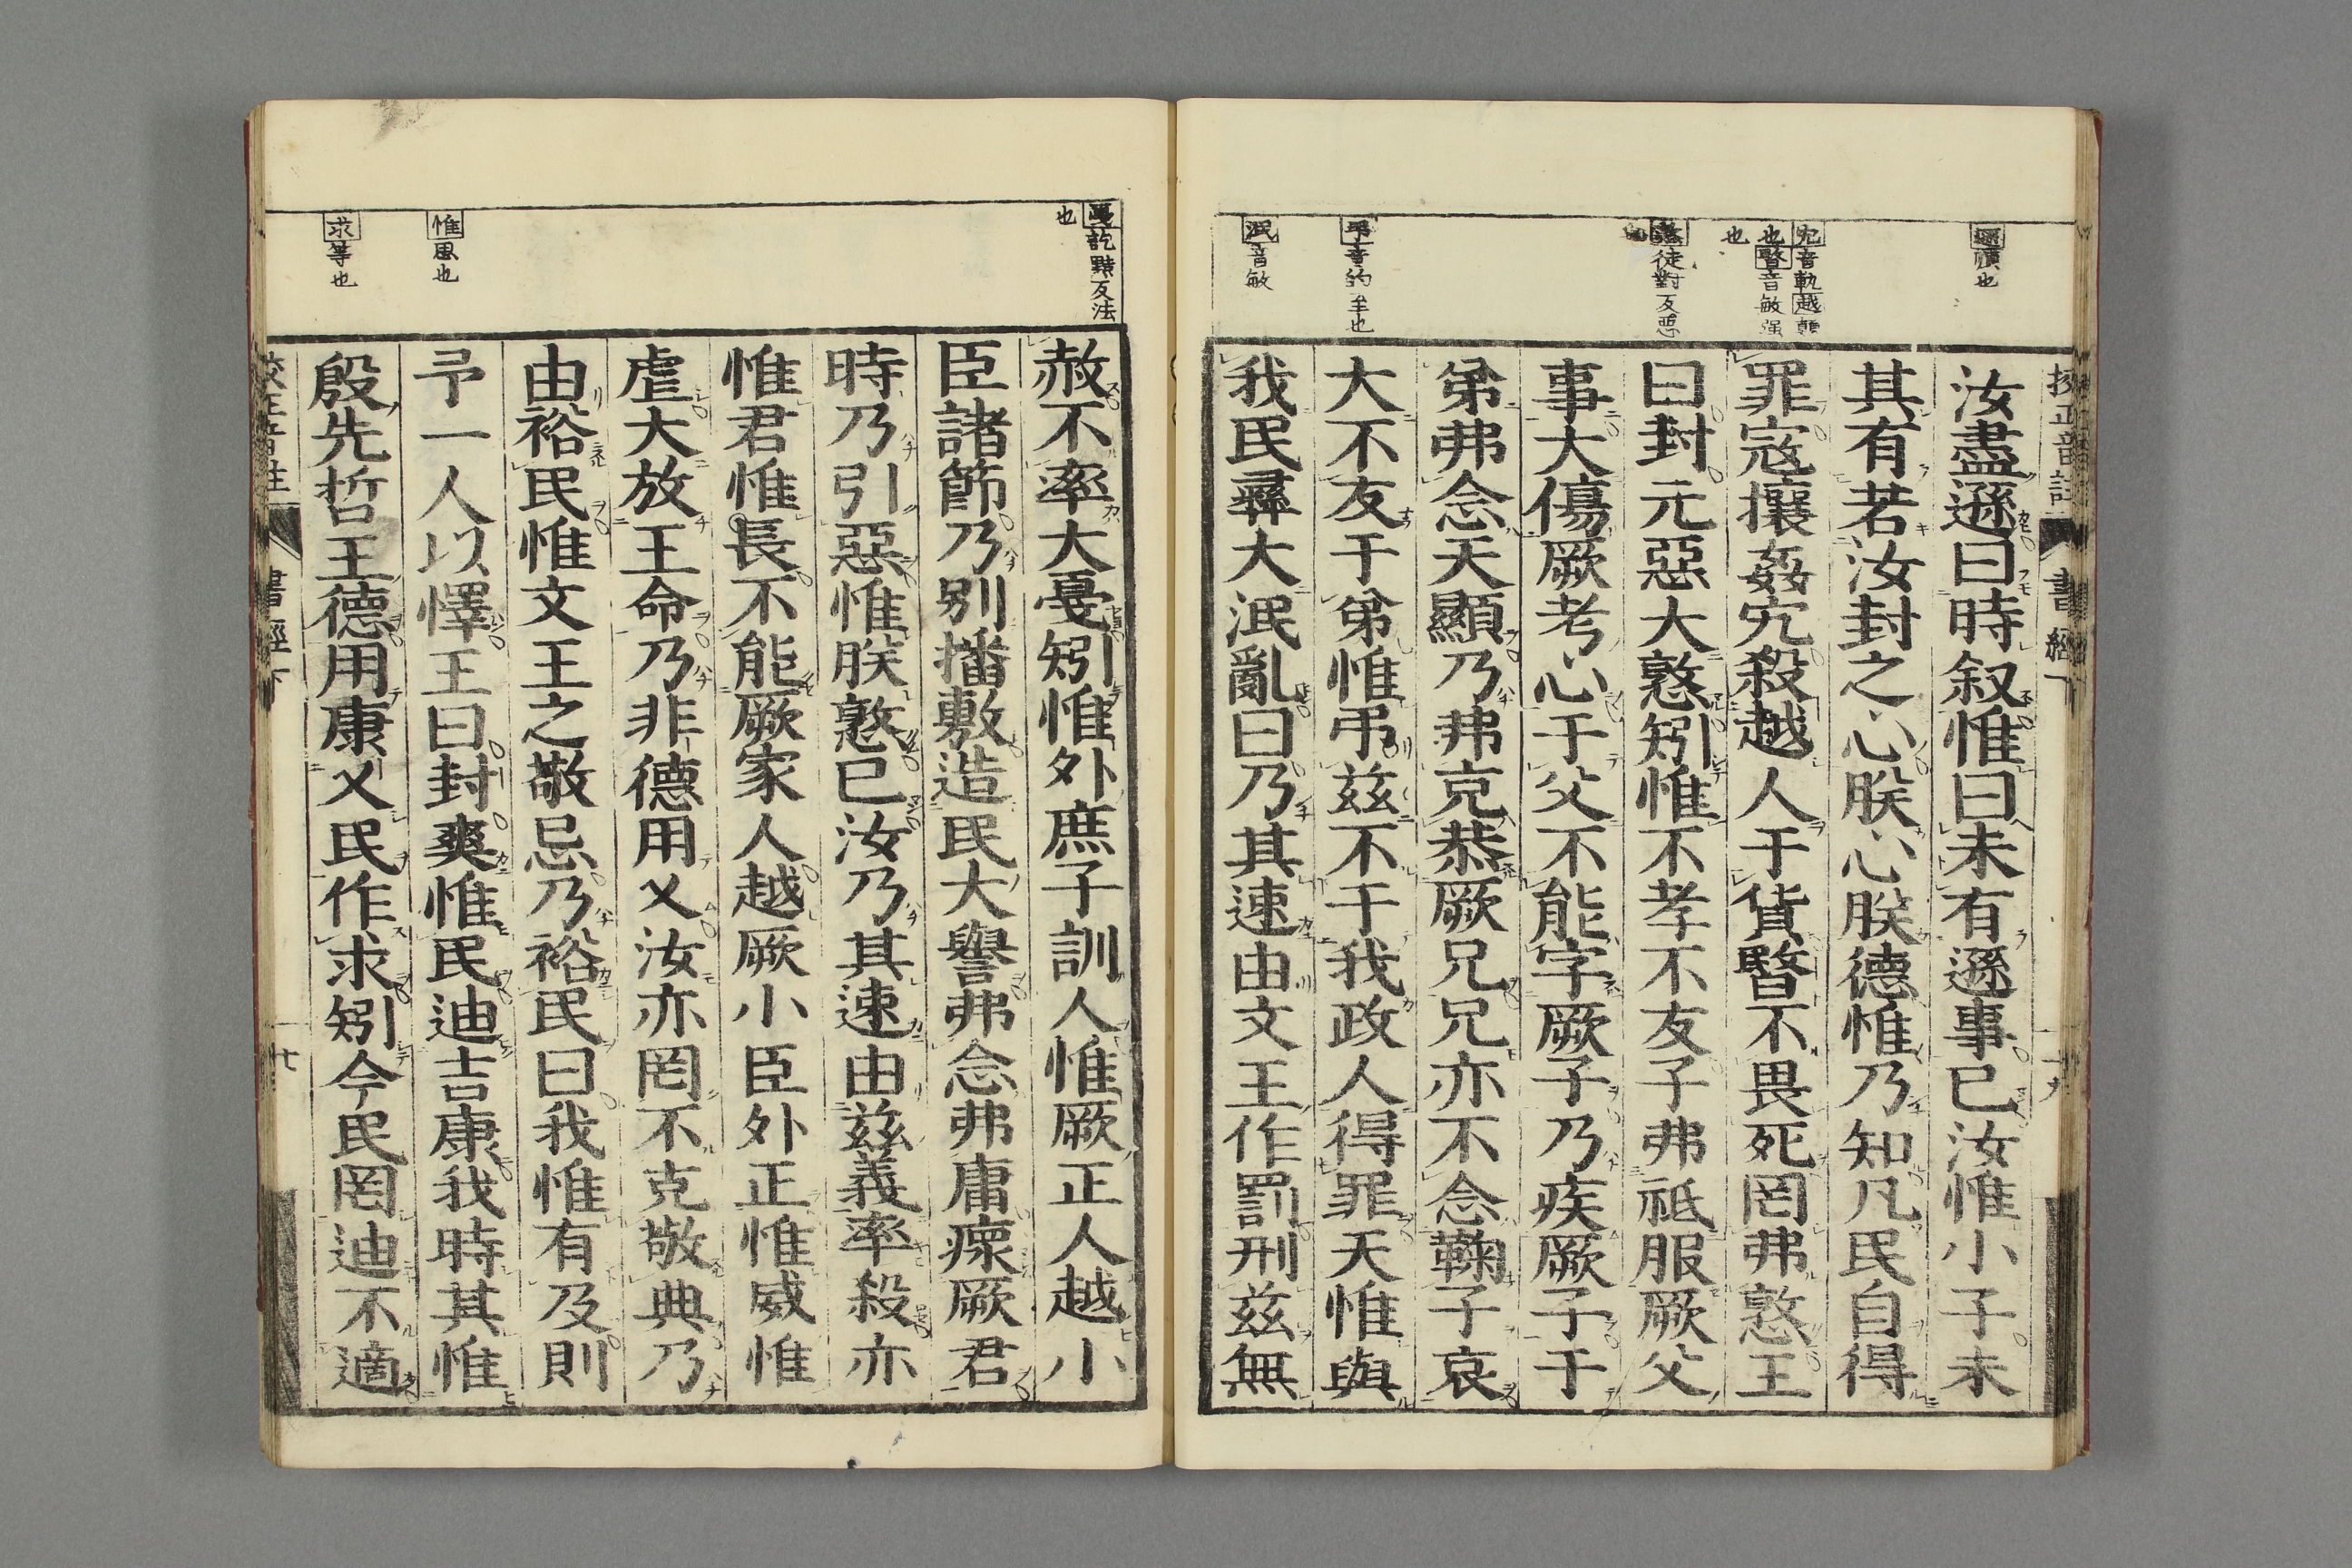 遜順也
宄音軌越顚
也暋音敏强
也
憝徒對反惡
也
弔音的至也
泯音敏
汝盡遜曰時叙惟曰未有遜事已汝惟小子未
其有若汝封之心朕心朕德惟乃知凡民自得
罪寇攘姦宄殺越人于貨暋不畏死罔弗憝王
曰封元惡大憝矧惟不孝不友子弗祗服厥父
事大傷厥考心于父不能字厥子乃疾厥子于
弟弗念天顯乃弗克恭厥兄兄亦不念鞠子哀
大不友于弟惟弔玆不于我政人得罪天惟與
我民彝大泯亂曰乃其速由文王作罰刑玆無
戛訖黠反法
也
惟思也
求等也
赦不率大戛矧惟外庶子訓人惟厥正人越小
臣諸節乃別播敷造民大譽弗念弗庸瘝厥君
時乃引惡惟朕憝已汝乃其速由玆義率殺亦
惟君惟長不能厥家人越厥小臣外正惟威惟
虐大放王命乃非德用乂汝亦罔不克敬典乃
由裕民惟文王之敬忌乃裕民曰我惟有及則
予一人以懌王曰封爽惟民迪吉康我時其惟
殷先哲王德用康乂民作求矧今民罔迪不適
書經下